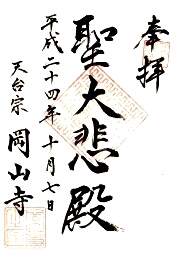 奉拝
聖大悲殿
平成二十四年十月七日
天台宗 岡山寺